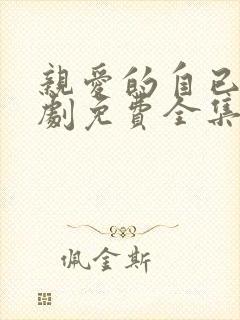 親愛的自己
劇免費全集
佩金斯